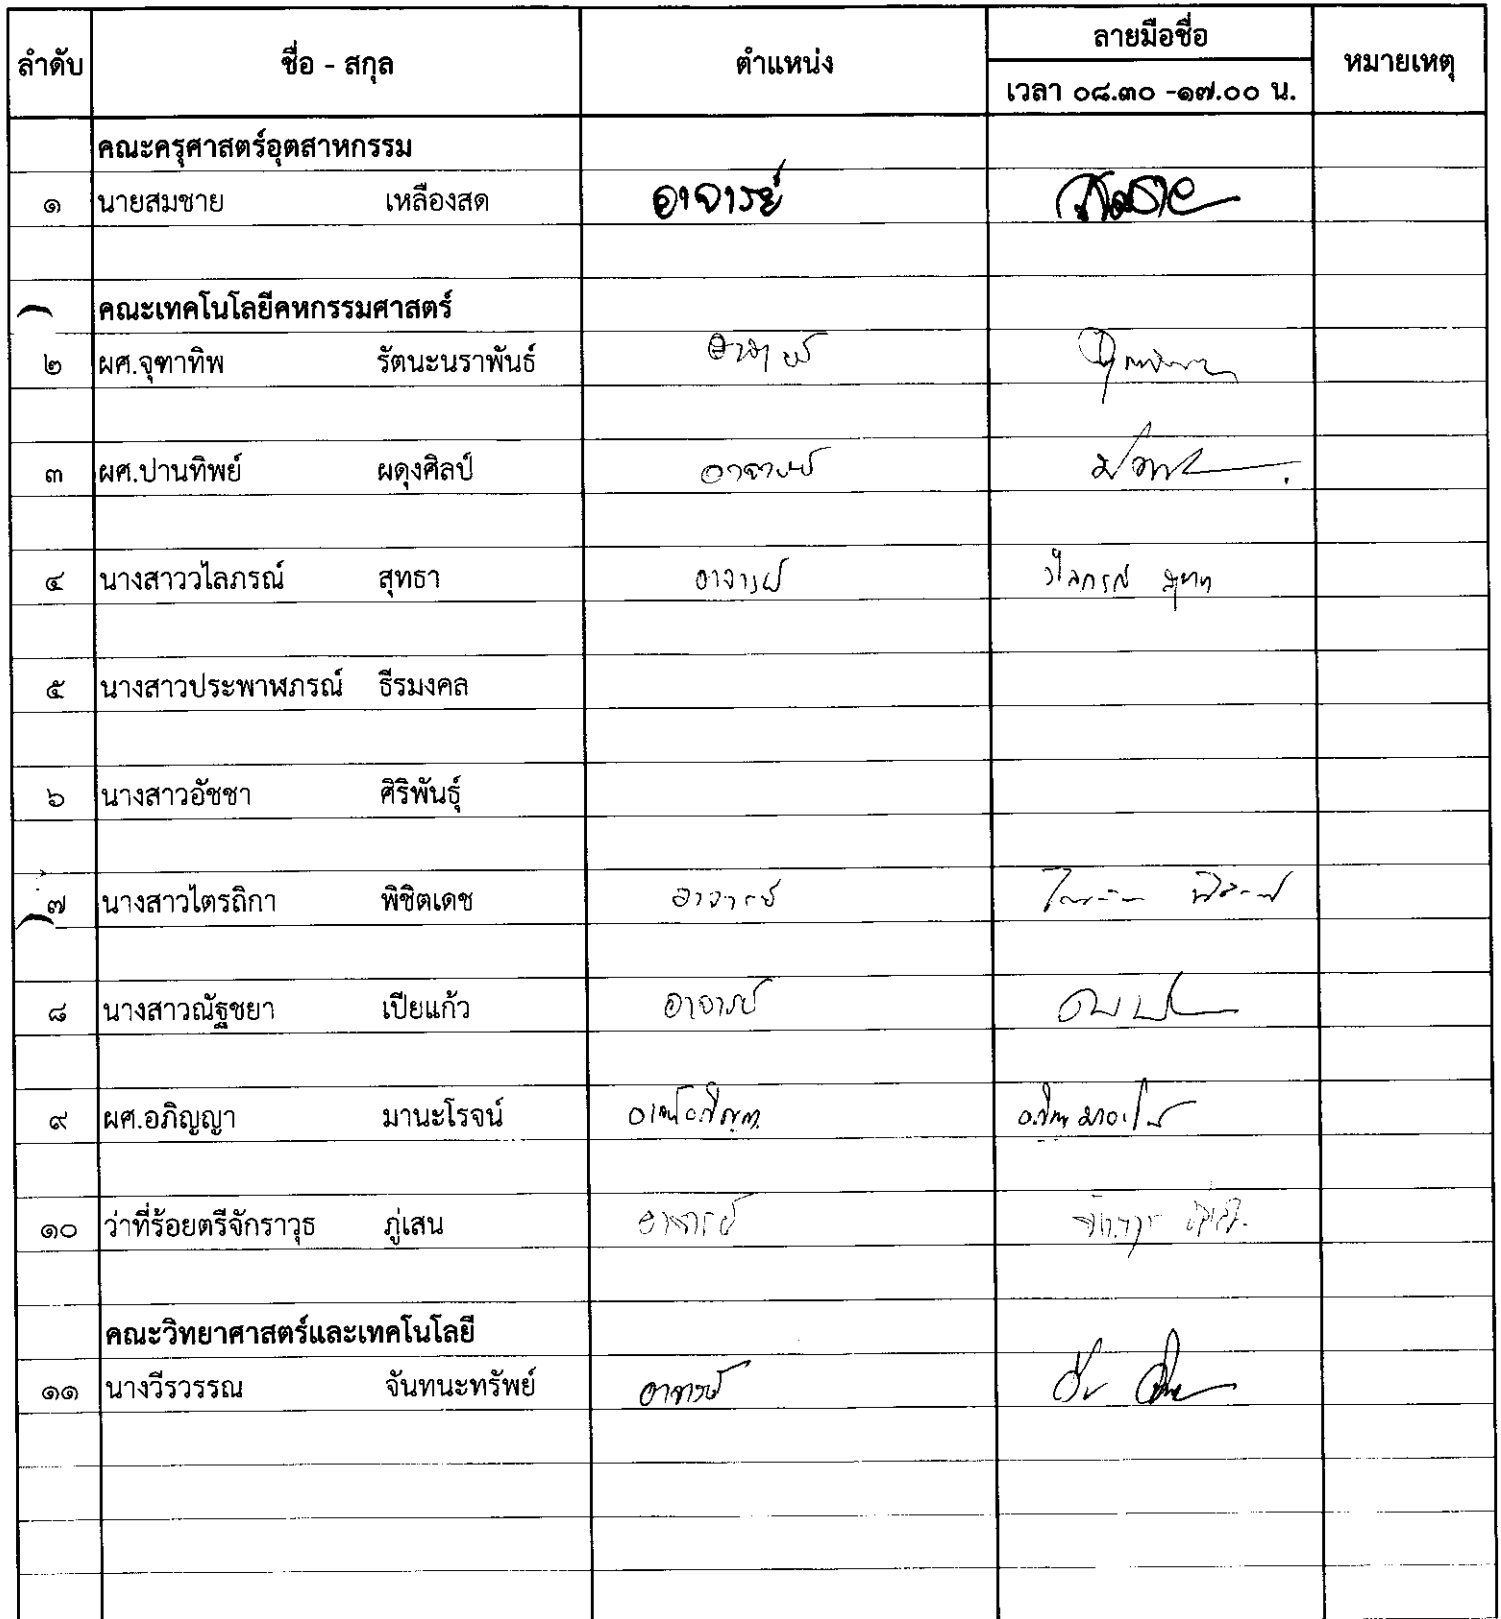 ลำดับ ชื่อ - สกุล ตำแหน่ง ลายมือชื่อ หมายเหตุ
เวลา ๐๘.๓๐ -๑๗.๐๐ น.
คณะครุศาสตร์อุตสาหกรรม
๑ นายสมชาย เหลืองสด อาจารย์
คณะเทคโนโลยีคหกรรมศาสตร์
๒ ผศ.จุฑาทิพ รัตนะนราพันธ์ อาจารย์
๓ ผศ.ปานทิพย์ ผดุงศิลป์ อาจารย์
๔ นางสาววไลภรณ์ สุทธา อาจารย์ วไลภรณ์ สุทธา
๕ นางสาวประพาฬภรณ์ ธีรมงคล
๖ นางสาวอัชชา ศิริพันธุ์
๗ นางสาวไตรถิกา พิชิตเดช อาจารย์
๘ นางสาวณัฐชยา เปียแก้ว อาจารย์
๙ ผศ.อภิญญา มานะโรจน์
๑๐ ว่าที่ร้อยตรีจักราวุธ ภู่เสน อาจารย์
คณะวิทยาศาสตร์และเทคโนโลยี
๑๑ นางวีรวรรณ จันทนะทรัพย์ อาจารย์